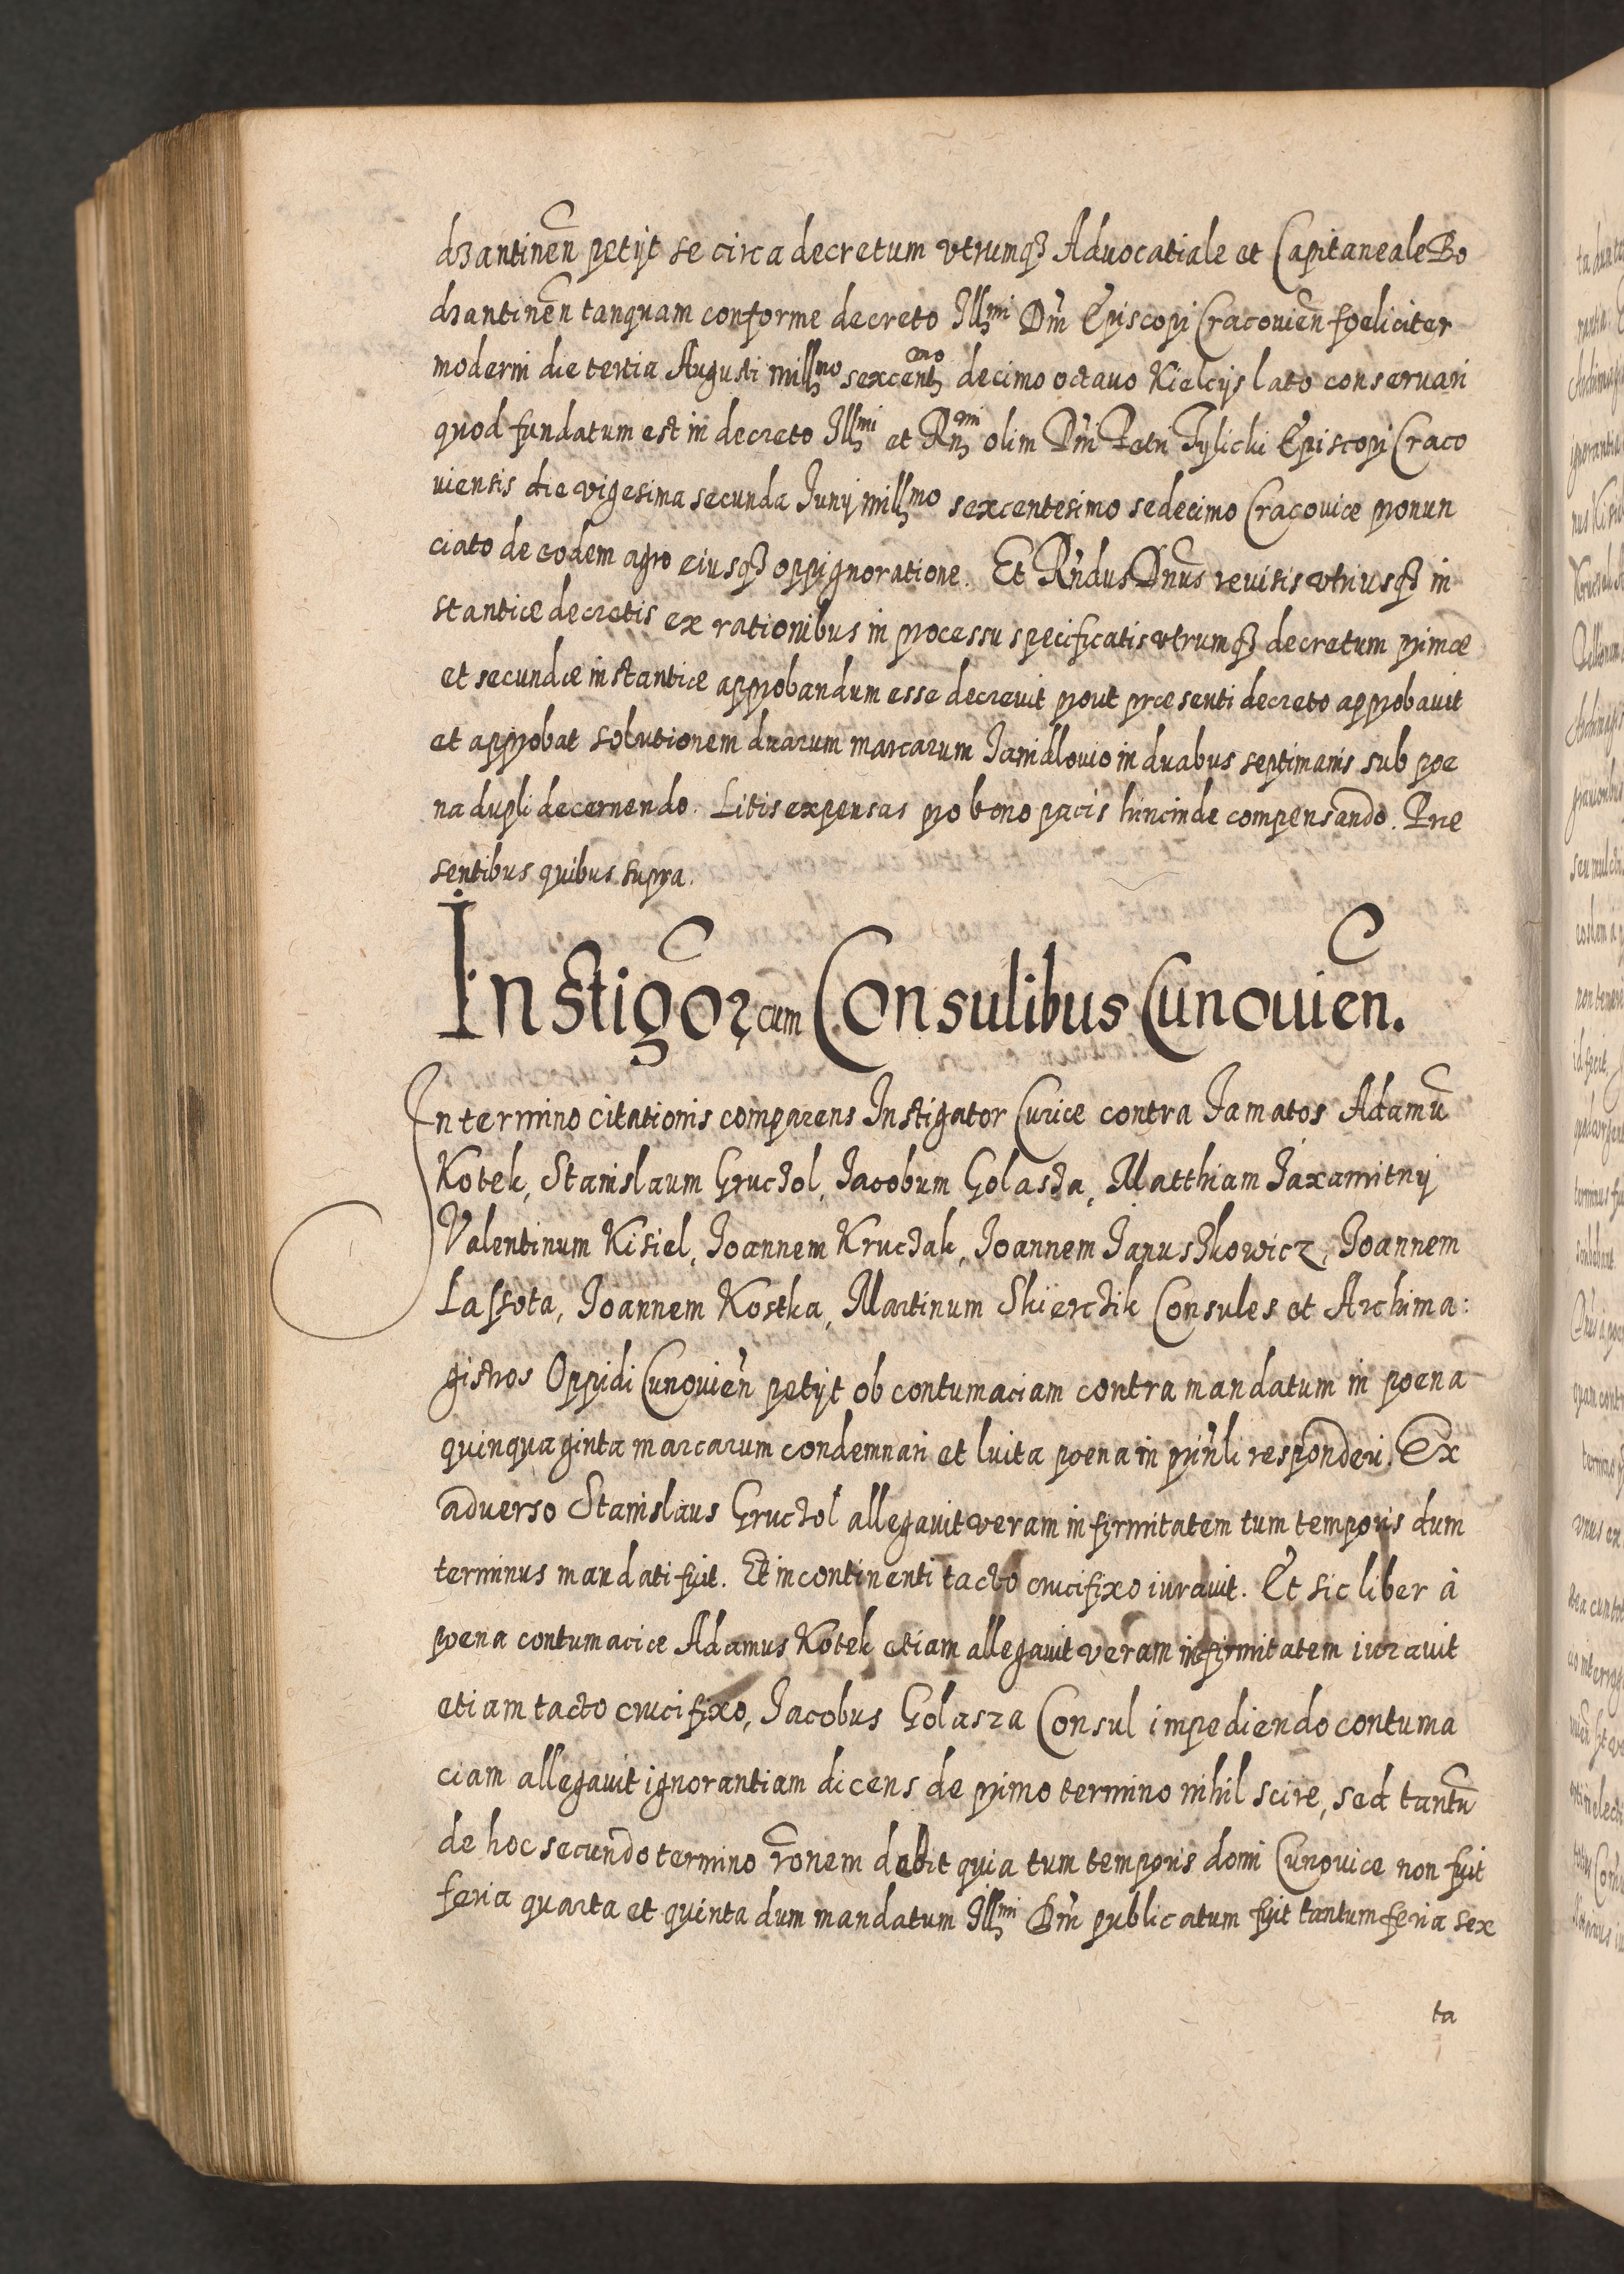 dzantinen̄ petijt se circa decretum vtrumq₃ Aduocatiale et Capitaneale Bo
dzantinen̄ tanquam conforme decreto Illmi Dni Episcopi Cracouien̄ foeliciter
moderni die tertia Augusti millmo sexcentmo decimo octauo Kielcijs lato conseruari
quod fundatum est in decreto Illmi et Rnmi olim Dni Petri Tylicki Episcopi Craco
uiensis die vigesima secunda Junij millmo sexcentesimo sedecimo Cracouiæ pronun
ciato de eodem agro eiusq₃ oppignoratione. Et Rndus Dnus reuisis vtriusq₃ in
stantiæ decretis ex rationibus in processu specificatis vtrumq₃ decretum primæ
et secundæ instantiæ approbandum esse decreuit prout præsenti decreto approbauit
et approbat solutionem duarum marcarum Janidlouio in duabus septimanis sub poe
na dupli decernendo. Litis expensas pro bono pacis hincinde compensando. Præ
sentibus quibus supra.
Instigōr cum Consulibus Cunouien̄.
In termino citationis comparens Instigator Curiæ contra Famatos Adamū
Kotek, Stanislaum Gruczol, Jacobum Golasza, Matthiam Jaxamitnij
Valentinum Kisiel, Joannem Kruczak, Joannem Januszkowicz, Joannem
Lassota, Joannem Kostka, Martinum Skierczik Consules et Archima:
gistros Oppidi Cunouien̄ petijt ob contumaciam contra mandatum in poena
quinquaginta marcarum condemnari et luita poena in prin̄li responderi. Ex
aduerso Stanislaus Gruczol allegauit veram infirmitatem tum temporis dum
terminus mandati fuit. Et incontinenti tacto crucifixo iurauit. Et sic liber à
poena contumaciæ Adamus Kotek etiam allegauit veram infirmitatem iurauit
etiam tacto crucifixo, Jacobus Golasza Consul impediendo contuma
ciam allegauit ignorantiam dicens de primo termino nihil scire, sed tantū
de hoc secundo termino rōnem dabit quia tum temporis domi Cunouiæ non fuit
feria quarta et quinta dum mandatum Illmi Dni publicatum fuit tantum feria sex
ta